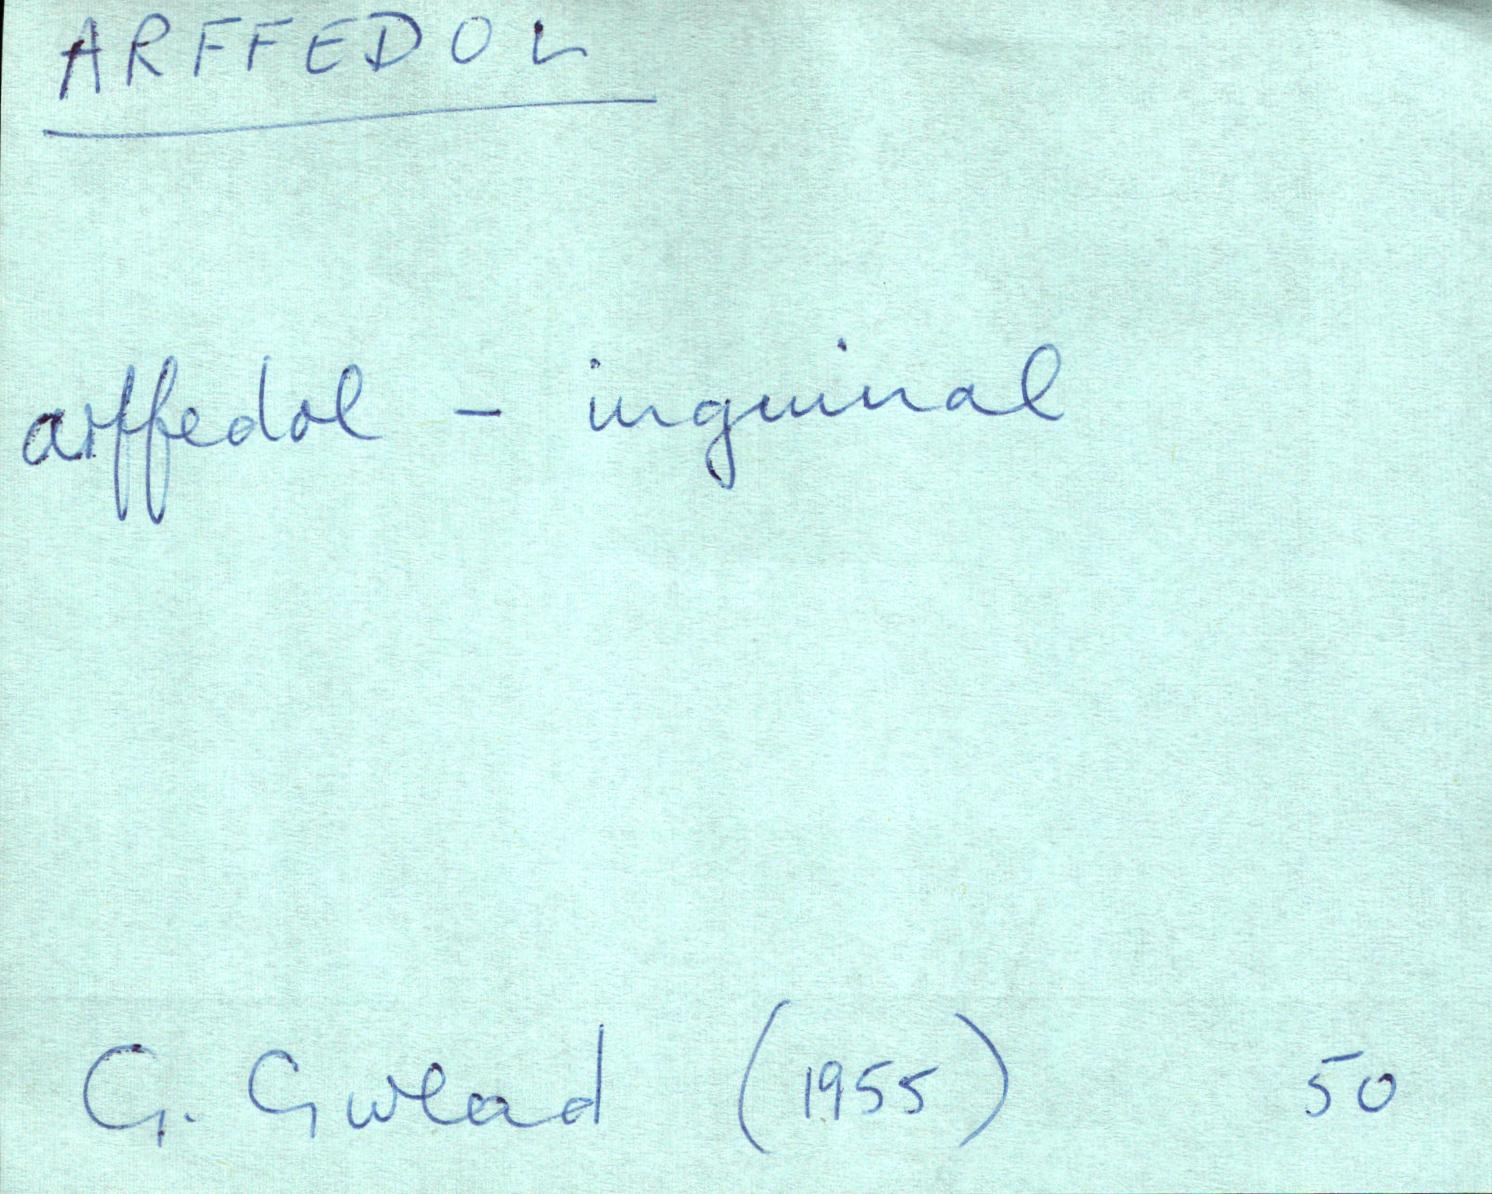 ARFFEDOL
arffedol - inguinal
G. Gwlad (1955) 50